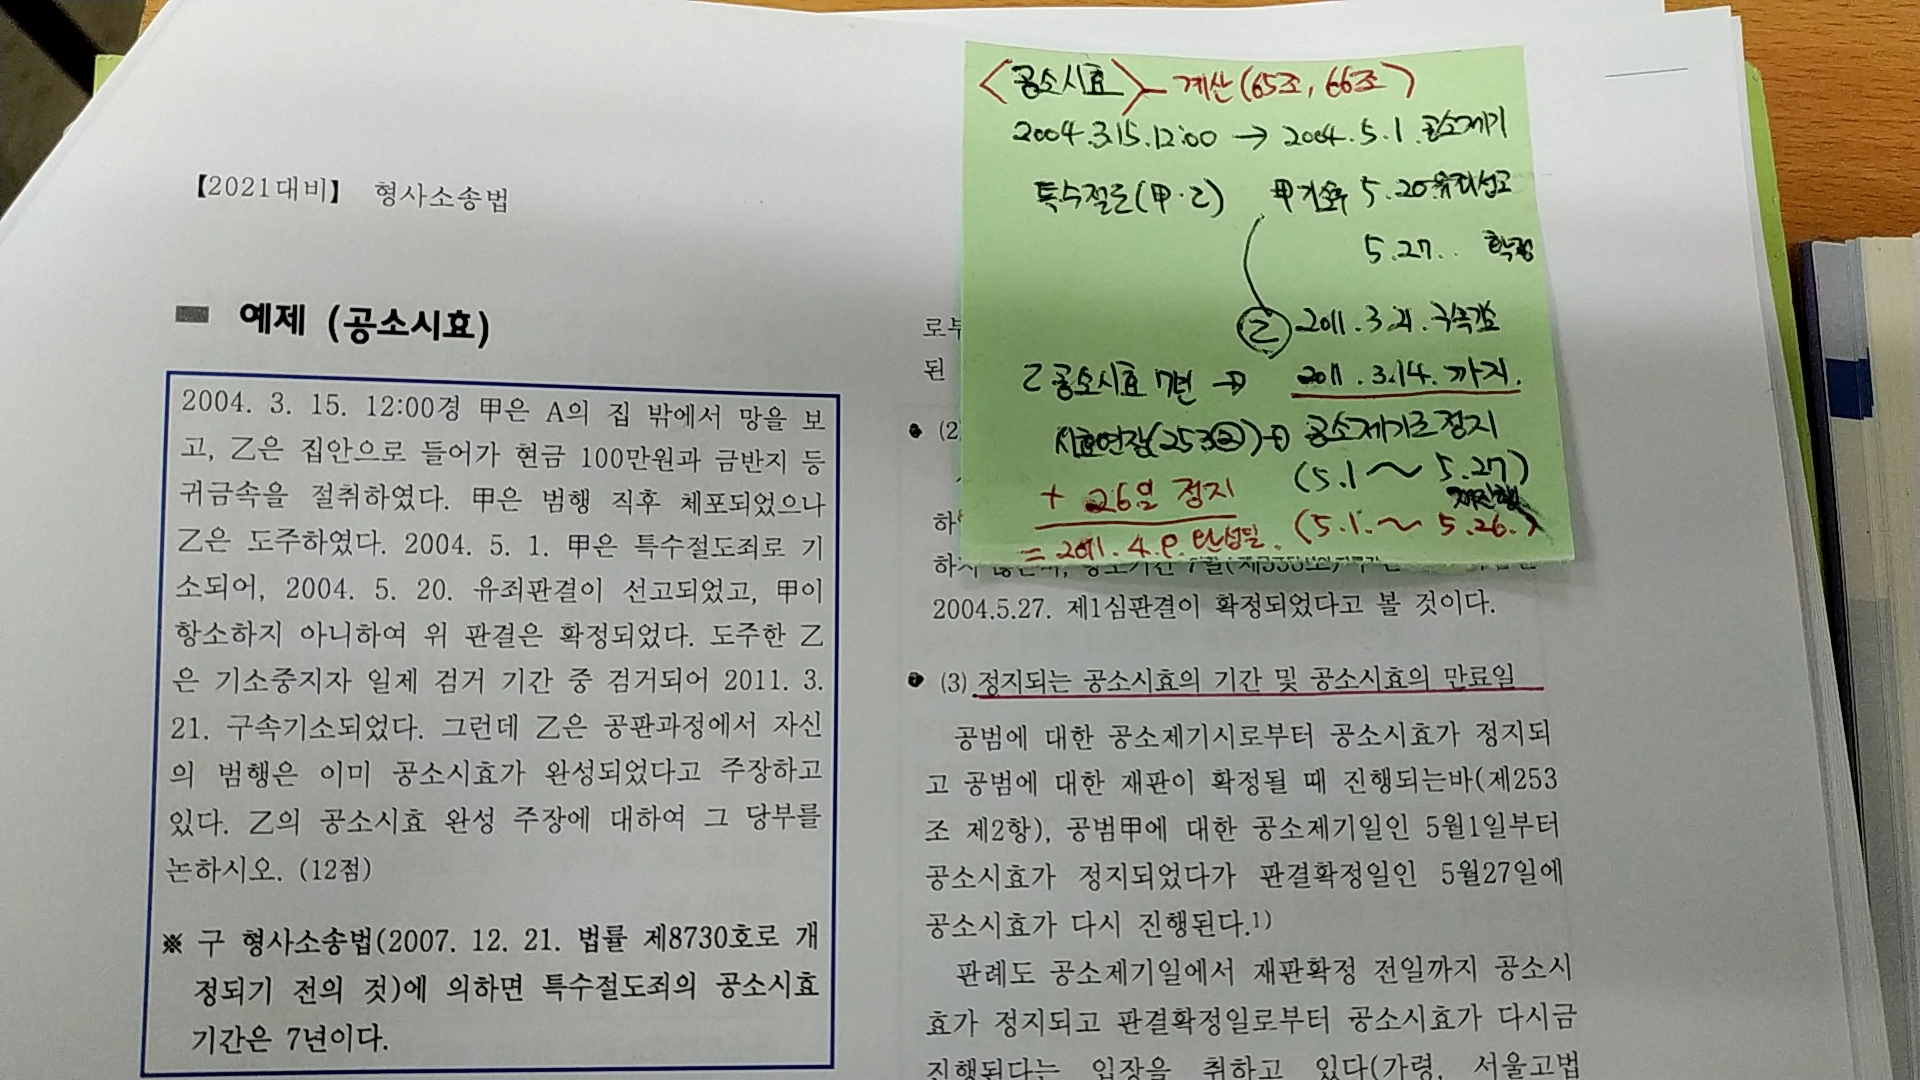 【2021대비】 형사소송법
예제 (공소시효)
2004. 3. 15. 12:00경 甲은 A의 집 밖에서 망을 보
고, 乙은 집안으로 들어가 현금 100만원과 금반지 등
귀금속을 절취하였다. 甲은 범행 직후 체포되었으나
乙은 도주하였다. 2004. 5. 1. 甲은 특수절도죄로 기
소되어, 2004. 5. 20. 유죄판결이 선고되었고, 甲이
항소하지 아니하여 위 판결은 확정되었다. 도주한 乙
은 기소중지자 일제 검거 기간 중 검거되어 2011. 3.
21. 구속기소되었다. 그런데 乙은 공판과정에서 자신
의 범행은 이미 공소시효가 완성되었다고 주장하고
있다. 乙의 공소시효 완성 주장에 대하여 그 당부를
논하시오. (12점)
※ 구 형사소송법(2007. 12. 21. 법률 제8730호로 개
정되기 전의 것)에 의하면 특수절도죄의 공소시효
기간은 7년이다.
<공소시효> - 계산(65조, 66조)
2004.3.15.12:00 → 2004.5.1.공소제기
특수절도(甲·乙) 甲기소후 5.20유죄선고
5.27.. 확정
乙 2011.3.21.구속기소
乙 공소시효 7년 → 2011.3.14.까지.
시효연장(253②)→ 공소제기로 정지
(5.1 ~ 5.27)
재진행
+ 26일 정지 (5.1. ~ 5.26.)
= 2011.4.9. 만료일.
로부
된
(2
하
2004.5.27. 제1심판결이 확정되었다고 볼 것이다.
(3) 정지되는 공소시효의 기간 및 공소시효의 만료일
공범에 대한 공소제기시로부터 공소시효가 정지되
고 공범에 대한 재판이 확정될 때 진행되는바(제253
조 제2항), 공범甲에 대한 공소제기일인 5월1일부터
공소시효가 정지되었다가 판결확정일인 5월27일에
공소시효가 다시 진행된다.1)
판례도 공소제기일에서 재판확정 전일까지 공소시
효가 정지되고 판결확정일로부터 공소시효가 다시금
진행된다는 입장을 취하고 있다(가령, 서울고법